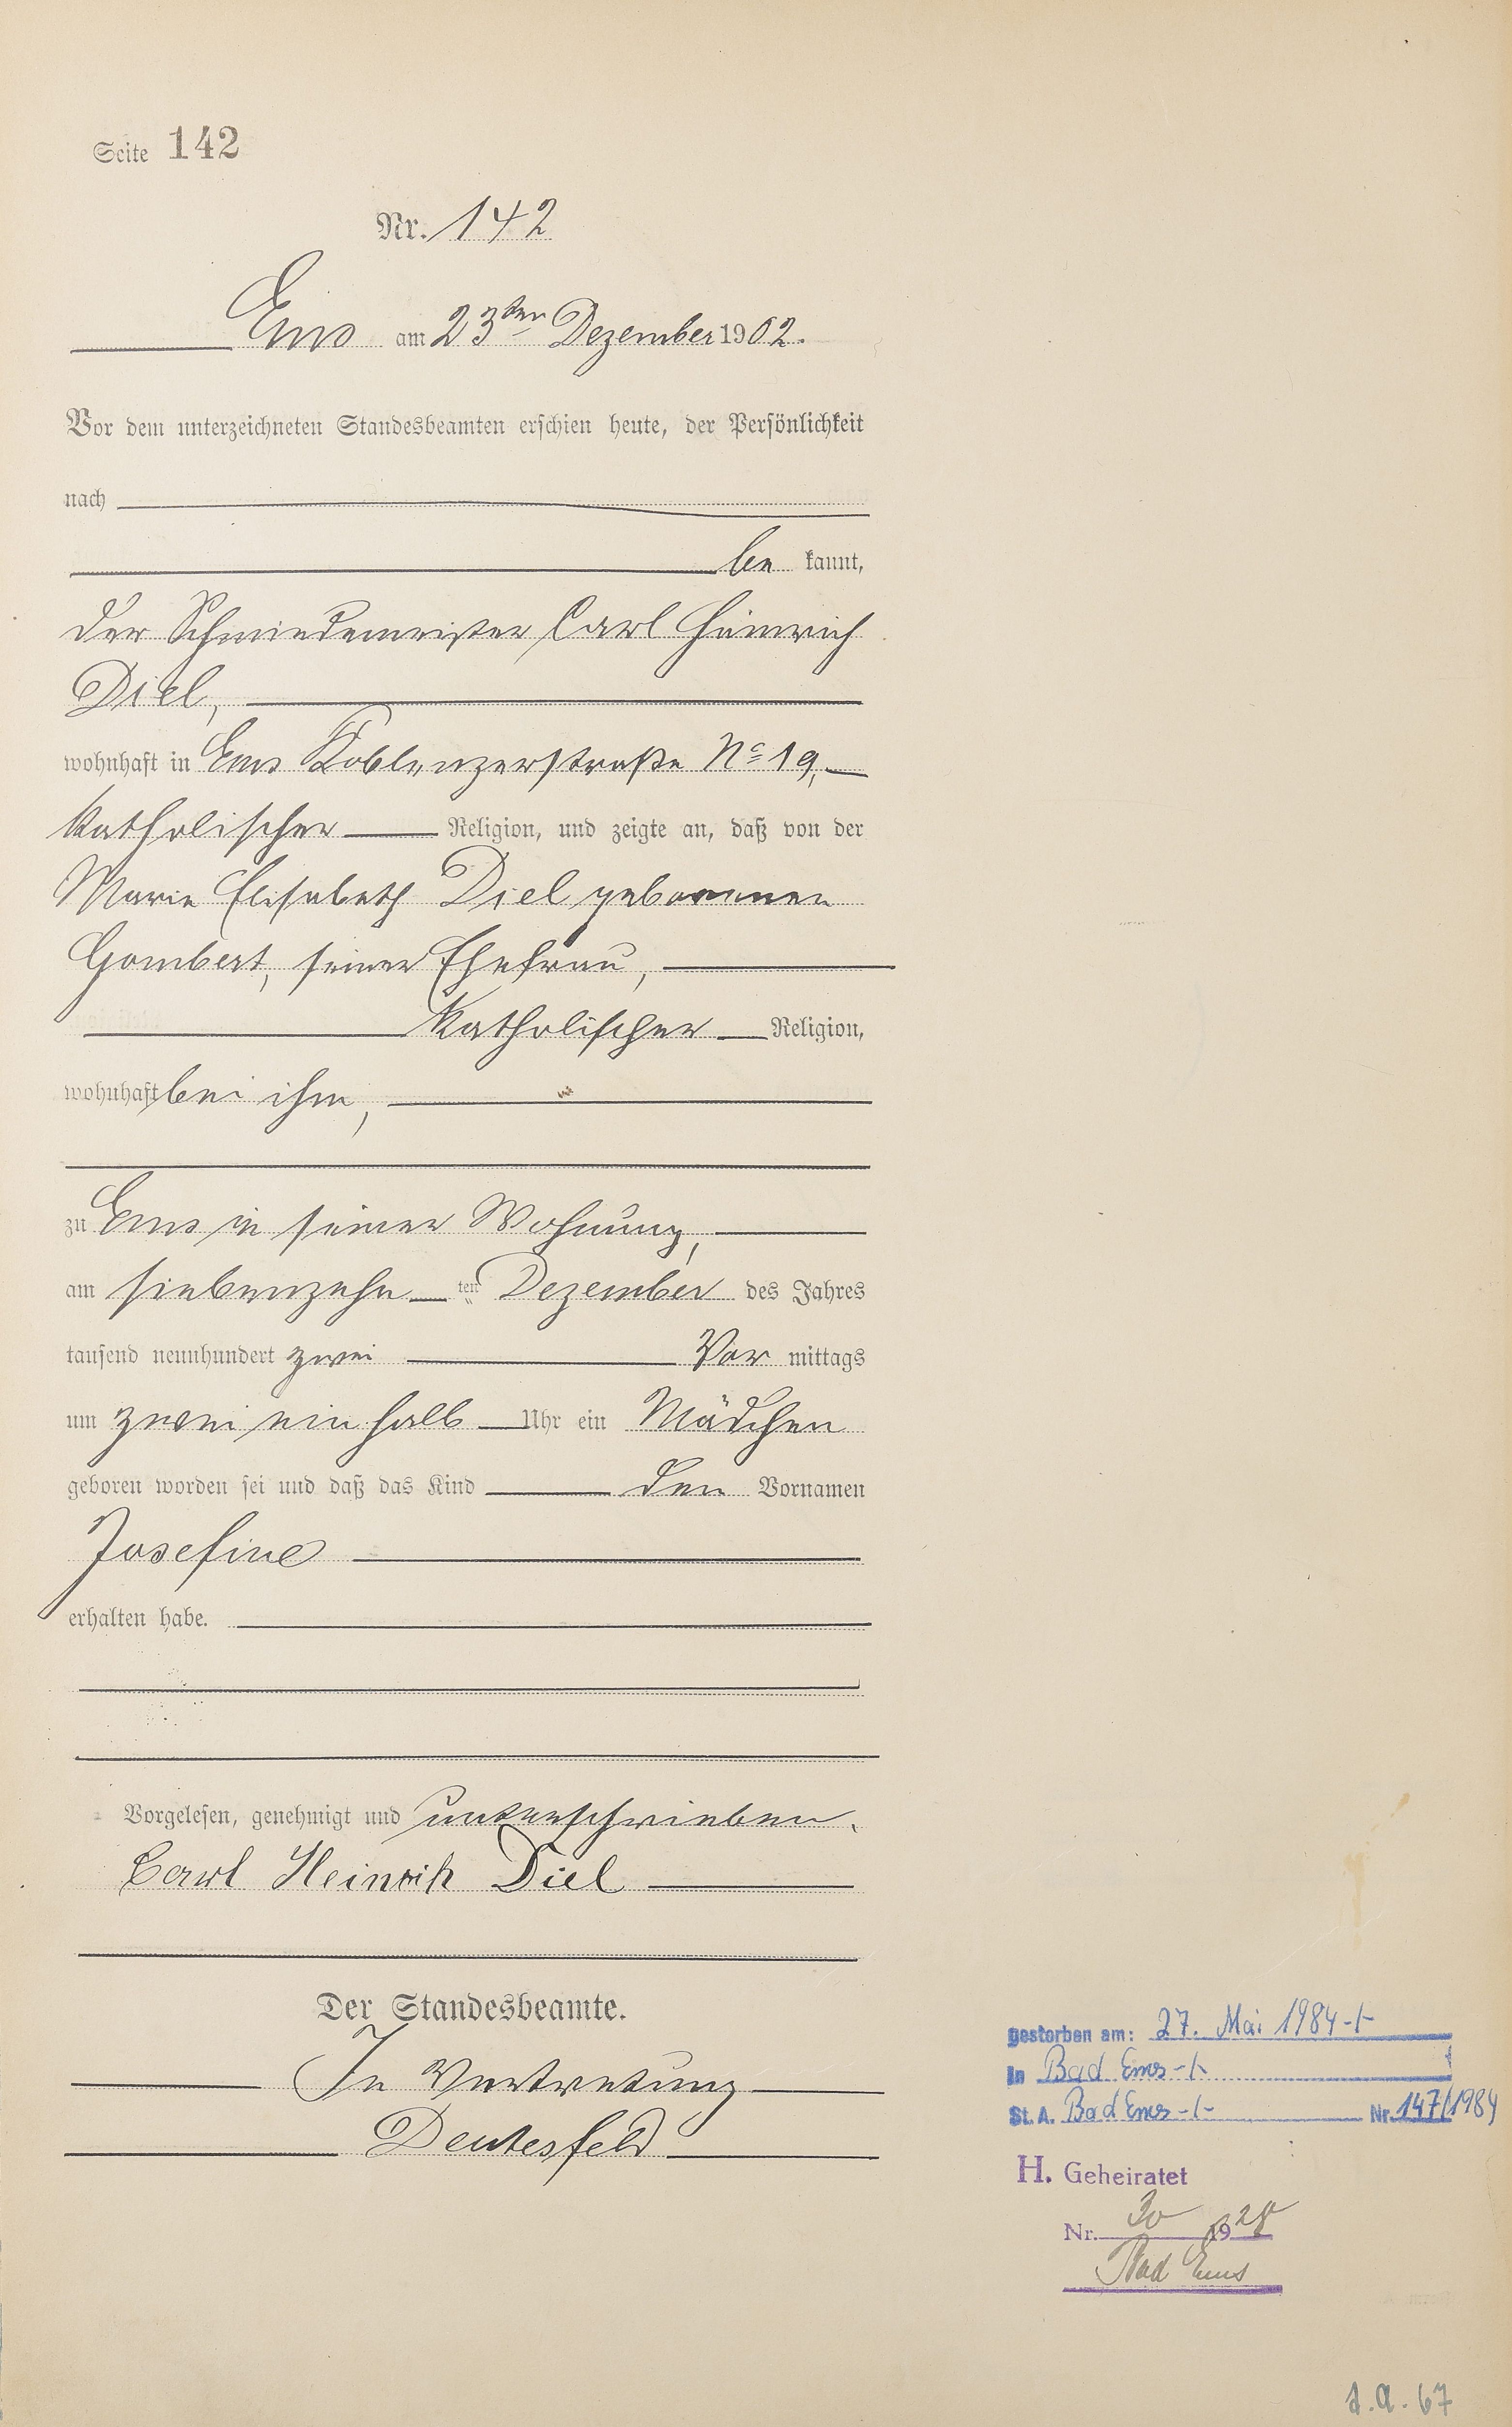 Seite 142
Nr. 142
Ems am 23ten Dezember 1902.
Vor dem unterzeichneten Standesbeamten erschien heute, der Persönlichkeit
nach
be kannt,
der Schmiedemeister Carl Heinrich
Diel,
wohnhaft in Ems Koblenzerstraße No 19,
katholischer Religion, und zeigte an, daß von der
Marie Elisabeth Diel geborenen
Gombert, seiner Ehefrau,
katholischer Religion,
wohnhaft bei ihm,
zu Ems in seiner Wohnung,
am siebenzehn ten Dezember des Jahres
tausend neunhundert zwei Vor mittags
um zwei ein halb Uhr ein Mädchen
geboren worden sei und daß das Kind den Vornamen
Josefine
erhalten habe.
Vorgelesen, genehmigt und unterschrieben.
Carl Heinrich Diel
Der Standesbeamte.
In Vertretung
Deutesfeld
gestorben am: 27. Mai 1984 -/-
in Bad Ems -/-
St. A. Bad Ems -/- Nr. 147/1984
H. Geheiratet
Nr. 30 1928
Bad Ems
d.a. 67